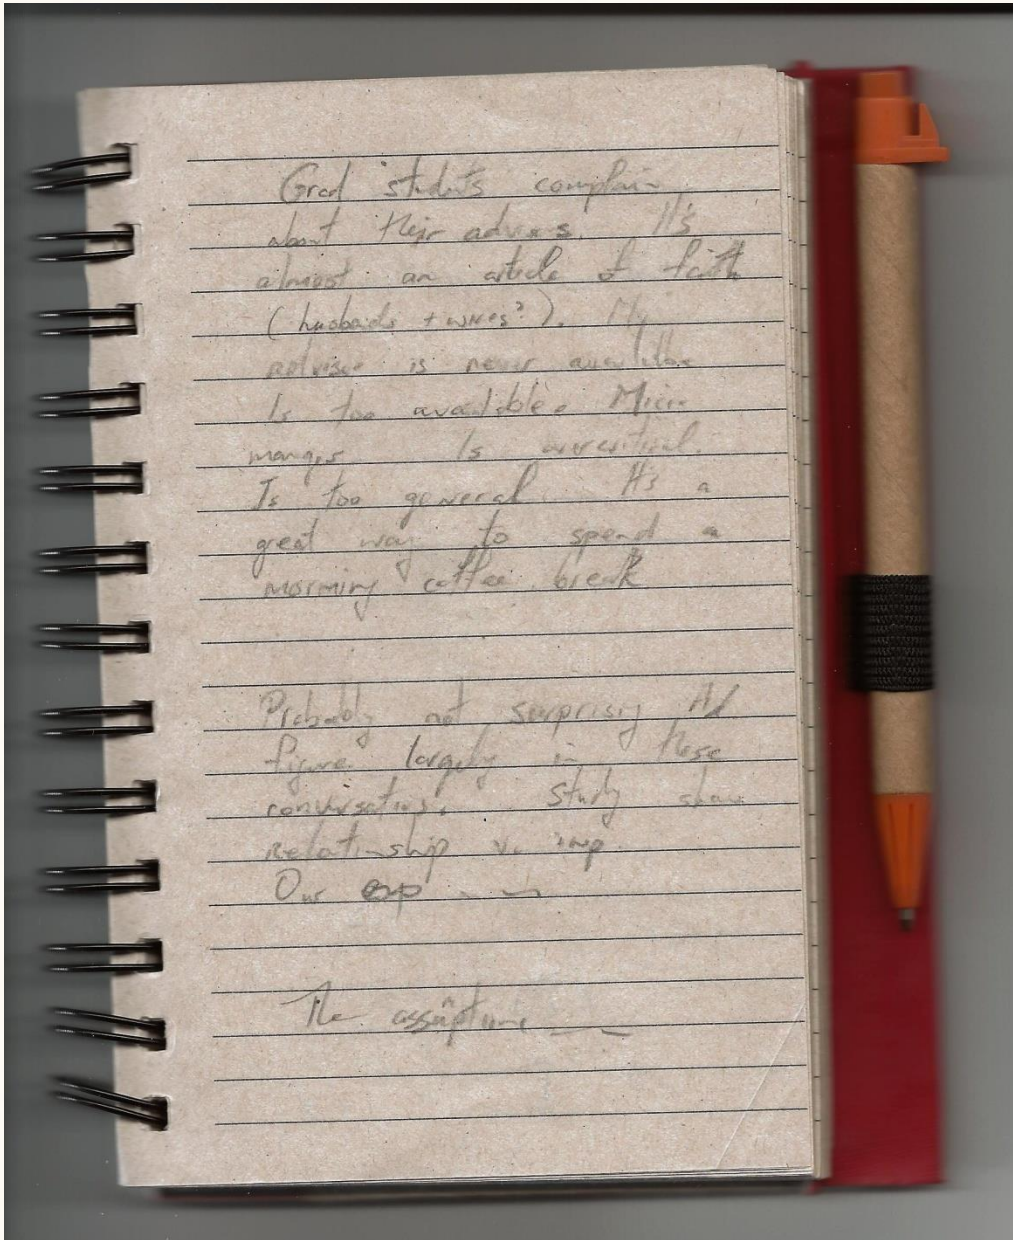 Grad students complain
about their advisors. It's
almost an article of faith
(husbands + wives?). My
advisor is never available
Is too available. Micro
manages Is overcritical.
Is too general. It's a
great way to spend a
morning coffee break
Probably not surprising
figure largely in these
conversations. Study show
relationship v. imp.
Our exp
The assumptions